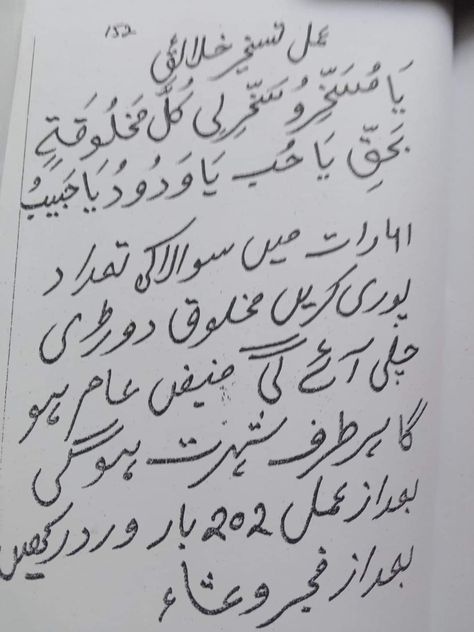 152
عمل تسخیر خلائق
یَا مُسَخِّرُ سَخِّرلِی کُلَّ مَخلُوقَتِے
بَحَقِّ یَا حُب یَا وَدُودُ یَا حَبِیبُ
41 رات میں سوا لاکھ تعداد
پوری کریں مخلوق دوڑی
چلی آئے گی فیض عام ہو
گا ہر طرف شہرت ہو گی
بعد از عمل 202 بار ورد رکھیں
بعد از فجر و عشاء